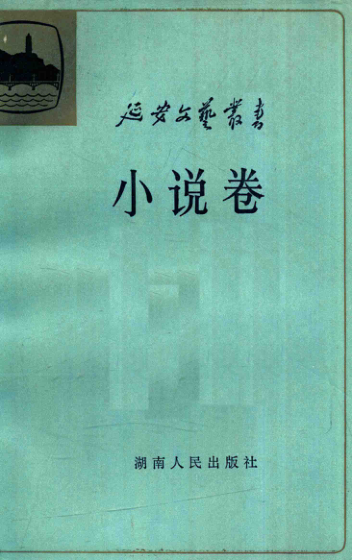 延安文艺丛書
小说卷
湖南人民出版社